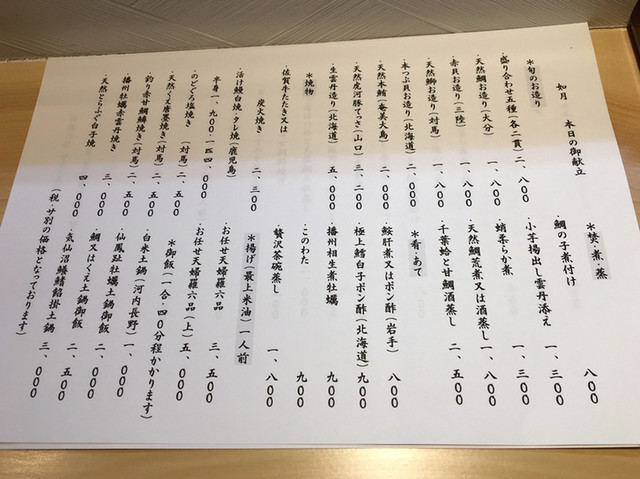 如月 本日の御献立
＊旬のお造り
・盛り合わせ五種(各二貫) 二、八〇〇
・天然鯛お造り(大分) 一、八〇〇
・赤貝お造り(三陸) 一、八〇〇
・天然鰤お造り(対馬) 一、八〇〇
・本つぶ貝お造り(北海道) 二、〇〇〇
・天然本鮪(奄美大島) 二、八〇〇
・天然虎河豚てっさ(山口) 三、二〇〇
・生雲丹造り(北海道) 五、〇〇〇
＊焼物
・佐賀牛たたき又は
炭火焼き 二、三〇〇
・活け鰻白焼・タレ焼(鹿児島)
半身一、九〇〇、一匹四、〇〇〇
・のどぐろ塩焼き(対馬) 二、五〇〇
・天然くえ塩藁焼き(対馬) 二、五〇〇
・釣り赤甘鯛鱗焼き(対馬) 二、五〇〇
・播州牡蠣赤雲丹焼き 三、〇〇〇
・天然とらふぐ白子焼 四、〇〇〇
＊焚・煮・蒸
・鯛の子煮付け 八〇〇
・小芋揚出し雲丹添え 一、三〇〇
・蛸柔らか煮 一、三〇〇
・天然鯛荒煮又は酒蒸し 一、八〇〇
・千葉蛤と甘鯛酒蒸し 二、五〇〇
＊肴・あて
・鮟肝煮又はポン酢(岩手) 八〇〇
・極上鱈白子ポン酢(北海道) 九〇〇
・播州相生煮牡蠣 九〇〇
・このわた 九〇〇
・贅沢茶碗蒸し 一、八〇〇
＊揚げ(最上米油)一人前
・お任せ天婦羅六品 三、五〇〇
・お任せ天婦羅六品(上) 五、〇〇〇
＊御飯(一合・40分程かかります)
・白米土鍋(河内長野) 一、〇〇〇
・仙鳳趾牡蠣土鍋御飯 二、〇〇〇
・鯛又はくえ土鍋御飯 二、五〇〇
・気仙沼鱶鰭餡掛土鍋 三、〇〇〇
(税・サ別の価格となっております)